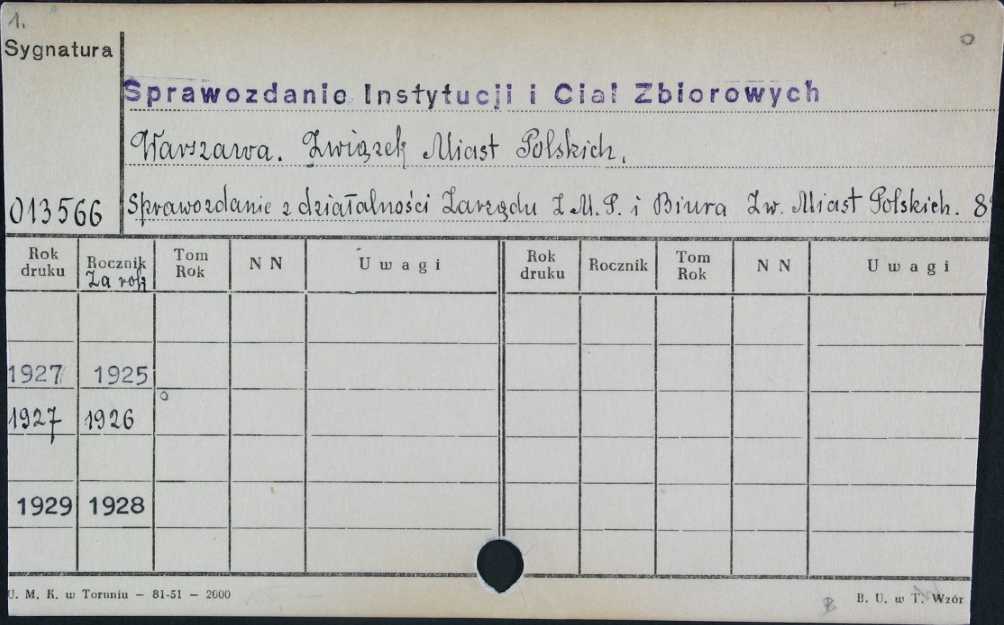 1.
Sygnatura
Sprawozdanie Instytucji i Ciał Zbiorowych
Warszawa. Związek Miast Polskich.
013566
Sprawozdanie z działalności Zarządu Z.M.P. i Biura Zw. Miast Polskich. 8°
Rok druku Rocznik Tom Rok N N Uwagi Rok druku Rocznik Tom Rok N N Uwagi
Za rok
1927 1925
1927 1926
1929 1928
U. M. K. w Toruniu — 81-51 — 2600
B. U. w T. Wzór